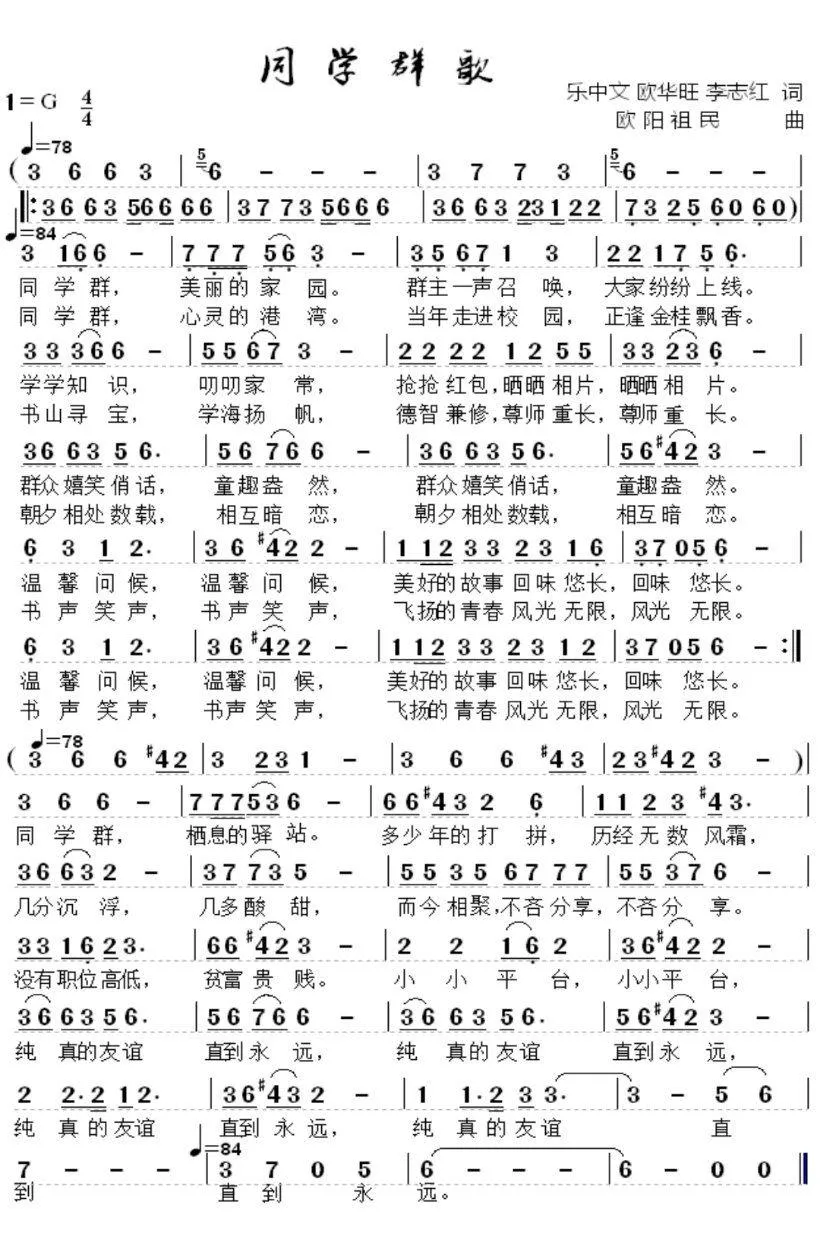 同学群歌
乐中文 欧华旺 李志红 词
1=G 4/4
欧阳祖民 曲
♩=78
( 3 6 6 3 | 5 6 - - - | 3 7 7 3 | 5 6 - - - |
|: 36 63 56666 66 | 37 73 5666 6 | 36 63 23122 | 73 25 60 60 ) |
♩=84
3 166 - | 777 56 3 - | 35 671 3 | 22 175 6. |
同 学 群， 美丽的 家 园。 群主一声召 唤， 大家纷纷上线。
同 学 群， 心灵的 港 湾。 当年走进校 园， 正逢金桂飘香。
33 366 - | 55 67 3 - | 22 22 12 55 | 33 23 6 - |
学学知 识， 叨叨家 常， 抢抢红包,晒晒相片,晒晒相 片。
书山寻 宝， 学海扬 帆， 德智兼修,尊师重长,尊师重 长。
36 63 5 6. | 56 76 6 - | 36 63 56. | 56 #42 3 - |
群众嬉笑俏话， 童趣盎 然， 群众嬉笑俏话， 童趣盎 然。
朝夕相处数载， 相互暗 恋， 朝夕相处数载， 相互暗 恋。
6 3 1 2. | 36 #42 2 - | 1 12 33 23 16 | 37 05 6 - |
温 馨 问 候， 温馨问 候， 美好的故事回味悠长，回味 悠长。
书 声 笑 声， 书声笑 声， 飞扬的青春风光无限，风光 无限。
6 3 1 2. | 36 #42 2 - | 1 12 33 23 12 | 37 05 6 - :|
温 馨 问 候， 温馨问 候， 美好的故事回味悠长，回味 悠长。
书 声 笑 声， 书声笑 声， 飞扬的青春风光无限，风光 无限。
♩=78
( 3 6 6 #42 | 3 23 1 - | 3 6 6 #43 | 23 #42 3 - ) |
3 6 6 - | 777 53 6 - | 66 #43 2 6 | 11 23 #43. |
同 学 群， 栖息的驿 站。 多少年的打 拼， 历经无数风霜，
36 63 2 - | 37 73 5 - | 55 35 67 77 | 55 37 6 - |
几分沉 浮， 几多酸 甜， 而今相聚,不吝分享,不吝分 享。
33 16 23. | 66 #42 3 - | 2 2 16 2 | 36 #42 2 - |
没有职位高低， 贫富贵 贱。 小 小 平 台， 小小平 台，
36 63 56. | 56 76 6 - | 36 63 56. | 56 #42 3 - |
纯 真的友谊 直到永 远， 纯 真的友谊 直到永 远，
2 2.2 12. | 36 #43 2 - | 1 1.2 3 3. | 3 - 5 6 |
纯 真的友谊 直到永 远， 纯 真的友谊 直
♩=84
7 - - - | 3 7 0 5 | 6 - - - | 6 - 0 0 ||
到 直 到 永 远。